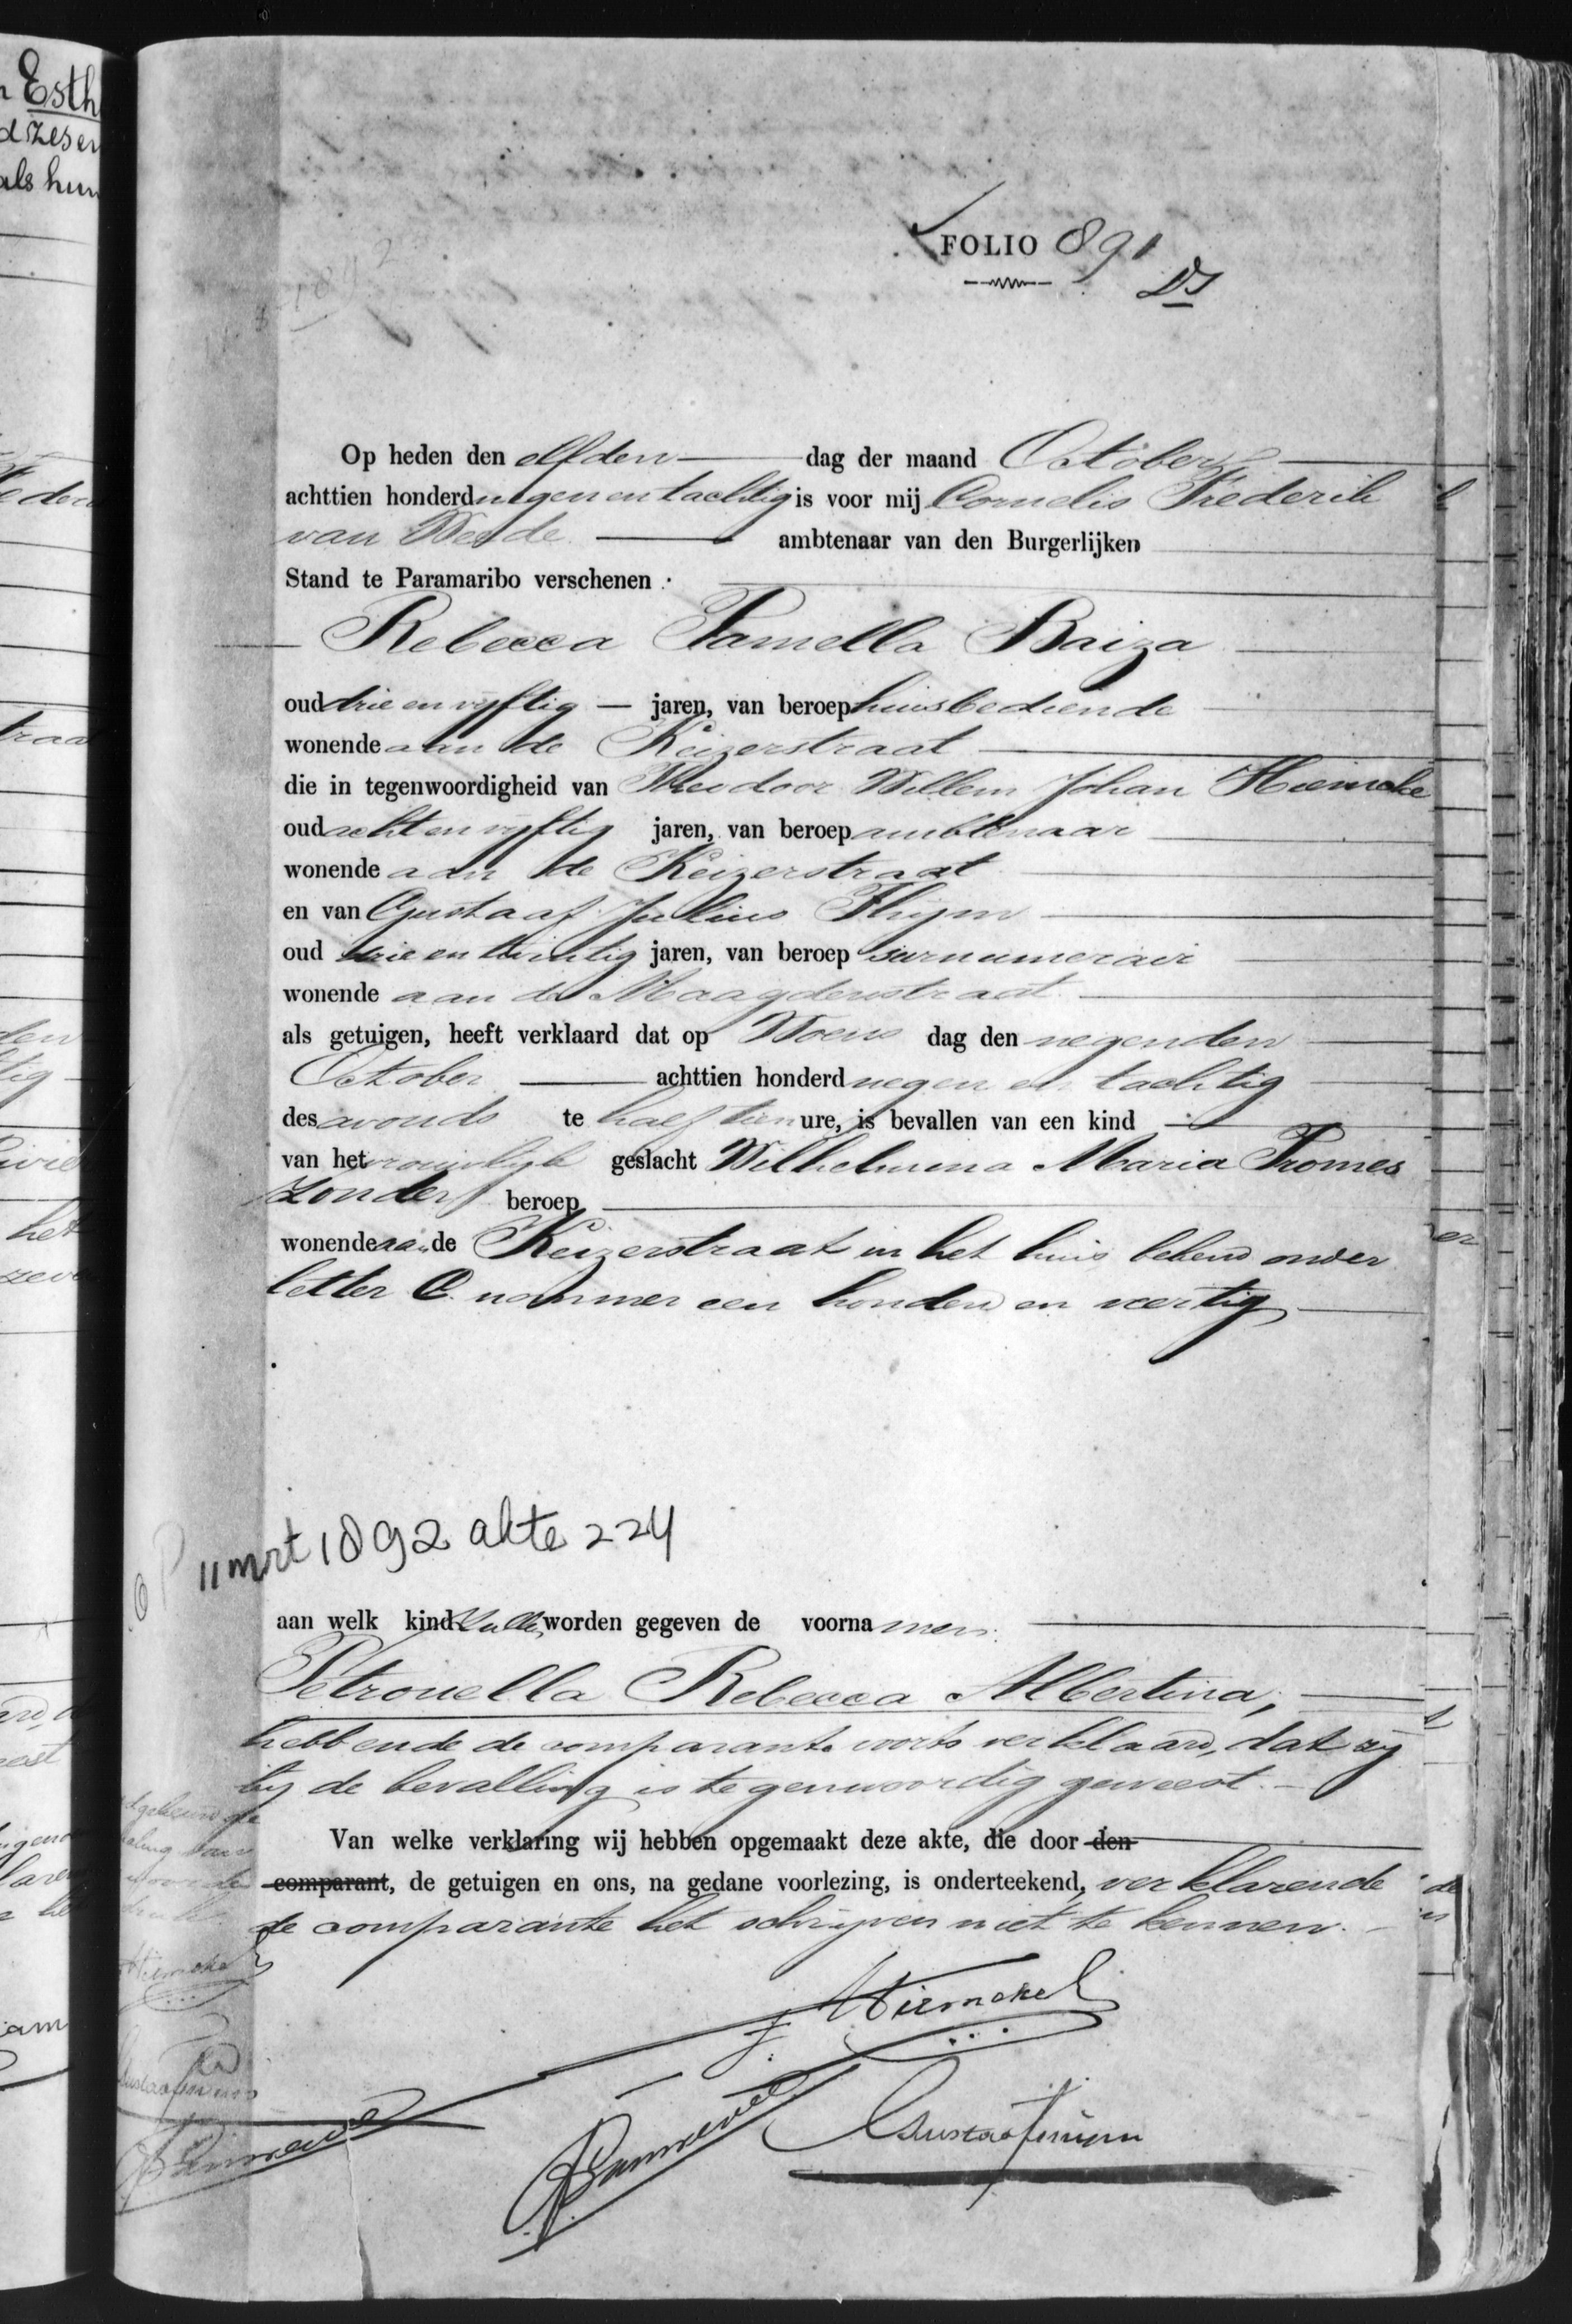 FOLIO 891
Op heden den elfden dag der maand October
achttien honderd negen en tachtig is voor mij Cornelis Frederik
van ambtenaar van den Burgerlijken
Stand te Paramaribo verschenen :
Rebecca Pamella Baiza
oud drie en vyftig jaren, van beroep huisbediende
wonende aan de Keizerstraat
die in tegenwoordigheid van Theodoor Willem Johan
oud acht en vyftig jaren, van beroep ambtenaar
wonende aan de Keizerstraat
en van Gustaaf Julius
oud drie en twintig jaren, van beroep surnumerair
wonende aan de Maagdenstraat
als getuigen, heeft verklaard dat op Woens dag den negenden
October achttien honderd negen en tachtig
des avonds te half tien ure, is bevallen van een kind
van het vrouwelyk geslacht Wilhelmina Maria Promes
zonder beroep
wonende aan de Keizerstraat in het huis bekend onder
letter C. nommer een honderd en veertig
11 mrt 1892 akte 224
aan welk kind zullen worden gegeven de voorna men:
Petronella Rebecca Albertina,
hebbende de comparante voorts verklaard, dat zy
by de bevalling is tegenwoordig geweest.
Van welke verklaring wij hebben opgemaakt deze akte, die door den
comparant, de getuigen en ons, na gedane voorlezing, is onderteekend, verklarende
de comparante het schryven niet te kennen.